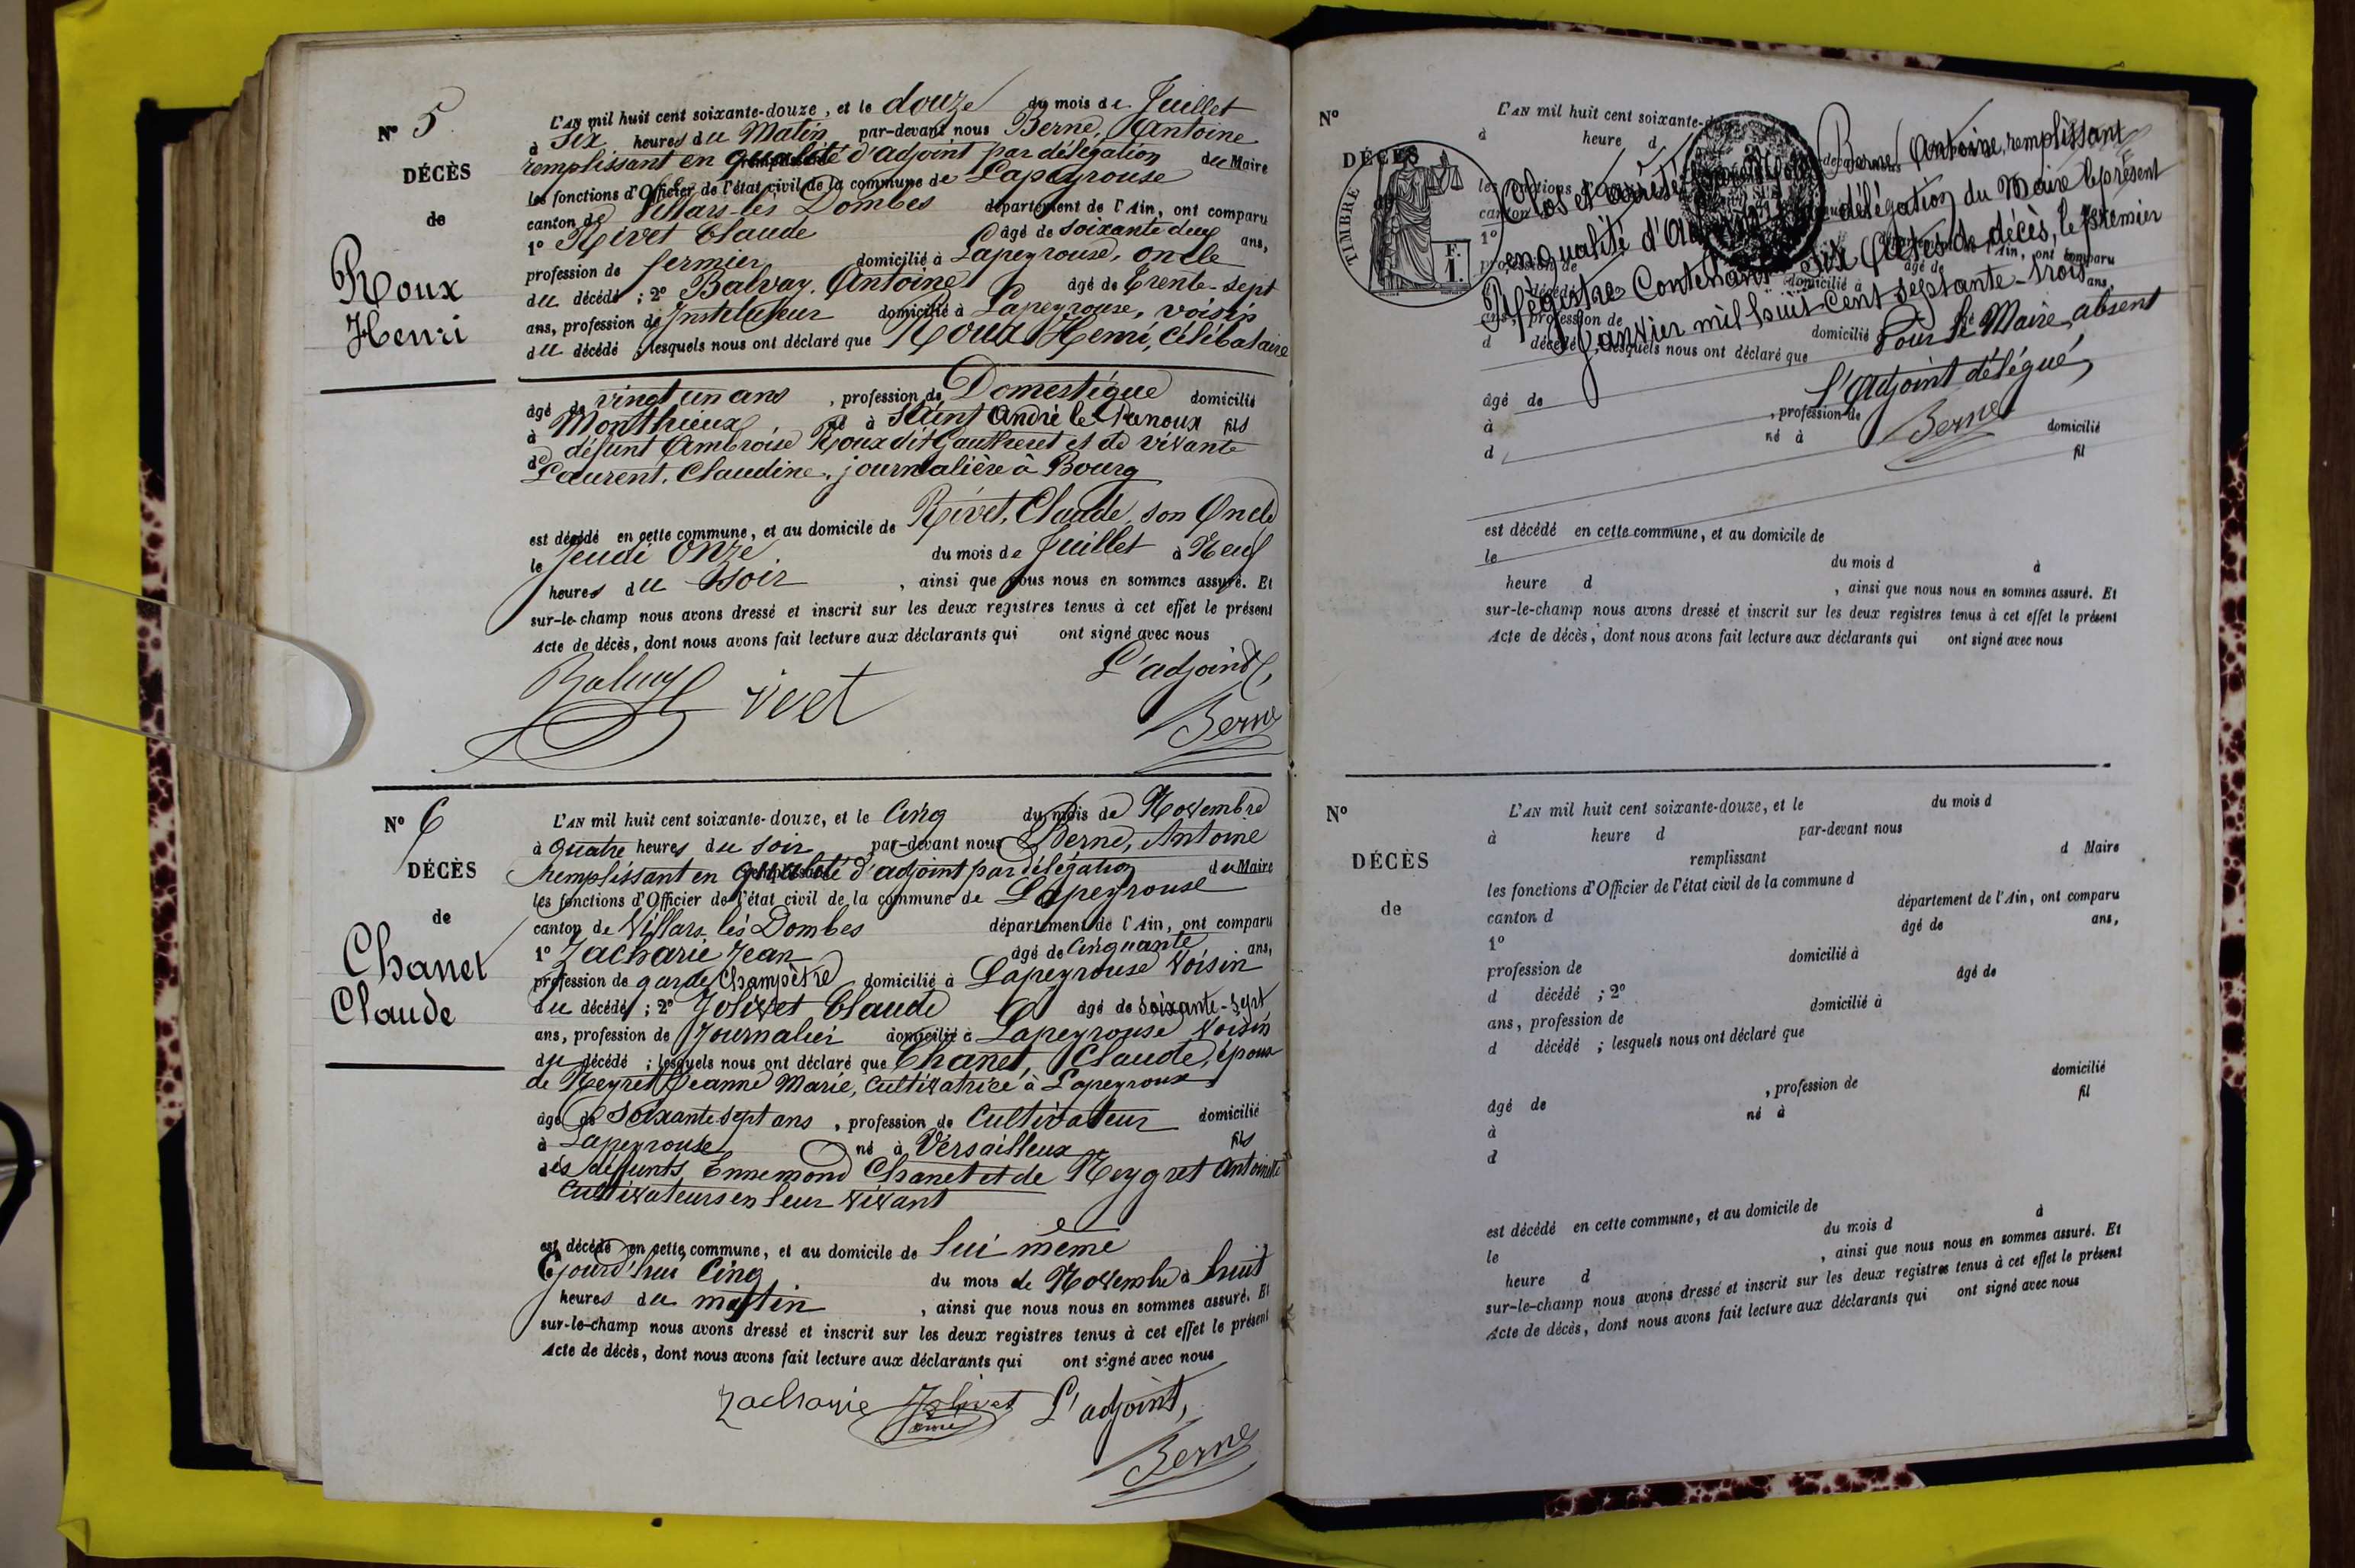 N° 5
DÉCÈS
de
Roux
Henri
L'AN mil huit cent soixante-douze, et le douze du mois de Juillet
à six heures du Matin par-devant nous Berne, Antoine
remplissant en qualité d'adjoint par délégation du Maire
les fonctions d'Officier de l'état civil de la commune de Lapeyrouse
canton de Villars-les Dombes département de l'Ain, ont comparu
1° Rivet Claude âgé de soixante deux ans,
profession de fermier domicilié à Lapeyrouse, oncle
du décédé ; 2° Balvay, Antoine âgé de Trente-sept
ans, profession de Instituteur domicilié à Lapeyrouse, voisin
du décédé ; lesquels nous ont déclaré que Roux Henri, célibataire
âgé de vingt un ans , profession de Domestique domicilié
à Monthieux né à Saint André le Panoux fils
de défunt Ambroise Roux dit Gautheret et de vivante
Laurent, Claudine, journalière à Bourg
est décédé en cette commune, et au domicile de Rivet, Claude, son Oncle
le Jeudi Onze du mois de Juillet à Neuf
heures du Soir , ainsi que nous nous en sommes assuré. Et
sur-le-champ nous avons dressé et inscrit sur les deux registres tenus à cet effet le présent
Acte de décès, dont nous avons fait lecture aux déclarants qui ont signé avec nous
Balvay Rivet L'adjoint,
Berne
N° 6
DÉCÈS
de
Chanet
Claude
L'AN mil huit cent soixante-douze, et le Cinq du mois de Novembre
à quatre heures du soir par-devant nous Berne, Antoine
remplissant en qualité d'adjoint par délégation du Maire
les fonctions d'Officier de l'état civil de la commune de Lapeyrouse
canton de Villars-les Dombes département de l'Ain, ont comparu
1° Zacharie Jean âgé de Cinquante ans,
profession de garde Champêtre domicilié à Lapeyrouse Voisin
du décédé ; 2° Jolivet Claude âgé de soixante-sept
ans, profession de Journalier domicilié à Lapeyrouse Voisin
du décédé ; lesquels nous ont déclaré que Chanet, Claude, époux
de Neyret Jeanne Marie, cultivatrice à Lapeyrouse
âgé de Soixante-sept ans , profession de Cultivateur domicilié
à Lapeyrouse né à Versailleux fils
des défunts Ennemond Chanet et de Neygret Antoinette
Cultivateurs en leur vivant
est décédé en cette commune, et au domicile de lui même
Ejourd'hui Cinq du mois de Novembre à huit
heures du matin , ainsi que nous nous en sommes assuré. Et
sur-le-champ nous avons dressé et inscrit sur les deux registres tenus à cet effet le présent
Acte de décès, dont nous avons fait lecture aux déclarants qui ont signé avec nous
Zacharie Jolivet L'adjoint,
Berne
N°
DÉCÈS
TIMBRE
F.
1.
L'AN mil huit cent soixante-
à heure d
Clos et arrêté par Nous Berne Antoine, remplissant
en qualité d'Adjoint délégation du Maire le présent
Régistre Contenant Six Actes de décès, le premier
Janvier mil huit cent septante-trois
Pour le Maire absent
L'Adjoint délégué,
Berne
ans, profession de domicilié
d décédé ; lesquels nous ont déclaré que
âgé de , profession de domicilié
à né à fil
d
est décédé en cette commune, et au domicile de
le du mois d à
heure d , ainsi que nous nous en sommes assuré. Et
sur-le-champ nous avons dressé et inscrit sur les deux registres tenus à cet effet le présent
Acte de décès, dont nous avons fait lecture aux déclarants qui ont signé avec nous
N°
DÉCÈS
de
L'AN mil huit cent soixante-douze, et le du mois d
à heure d par-devant nous
remplissant d Maire
les fonctions d'Officier de l'état civil de la commune d
canton d département de l'Ain, ont comparu
1° âgé de ans,
profession de domicilié à
d décédé ; 2° âgé de
ans, profession de domicilié à
d décédé ; lesquels nous ont déclaré que
âgé de , profession de domicilié
à né à fil
d
est décédé en cette commune, et au domicile de
le du mois d à
heure d , ainsi que nous nous en sommes assuré. Et
sur-le-champ nous avons dressé et inscrit sur les deux registres tenus à cet effet le présent
Acte de décès, dont nous avons fait lecture aux déclarants qui ont signé avec nous